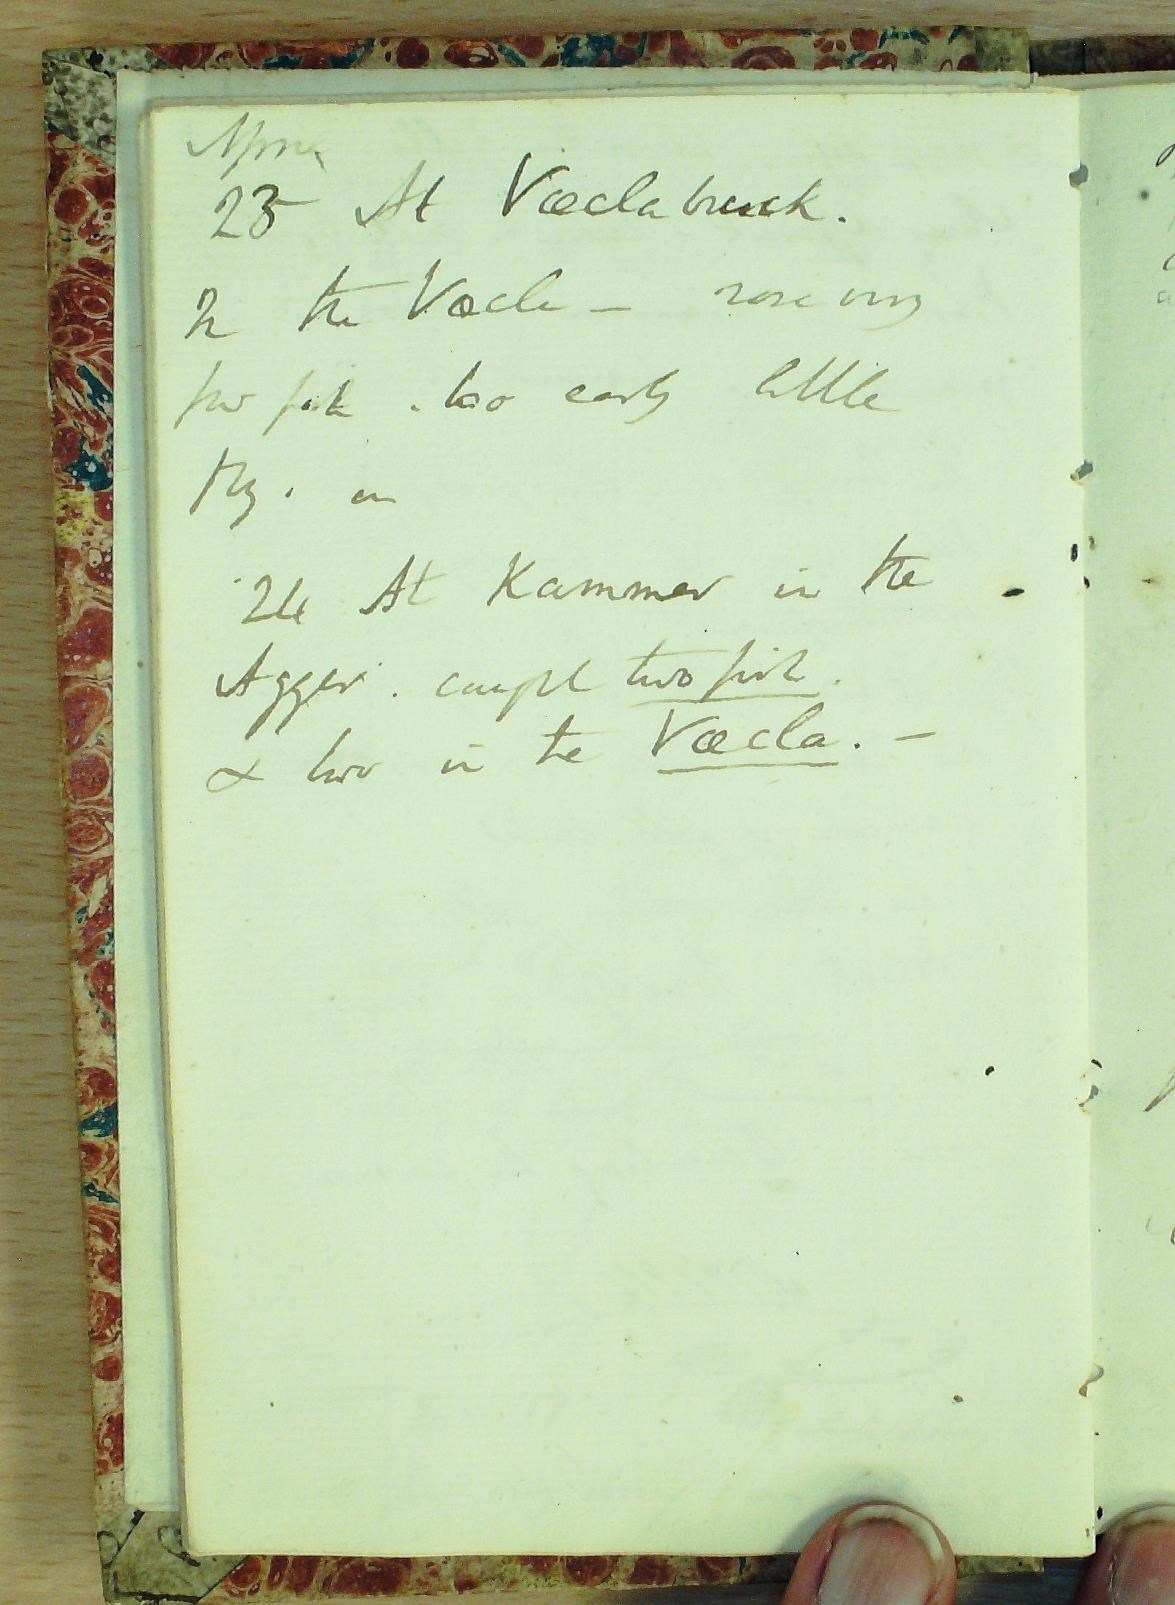 23 At Vœclabruck.
In the Vœcla – rose very
few fish . too early little
fly .
24 At Kammer in the
Agger . caught two fish .
& two in the Vœcla . –